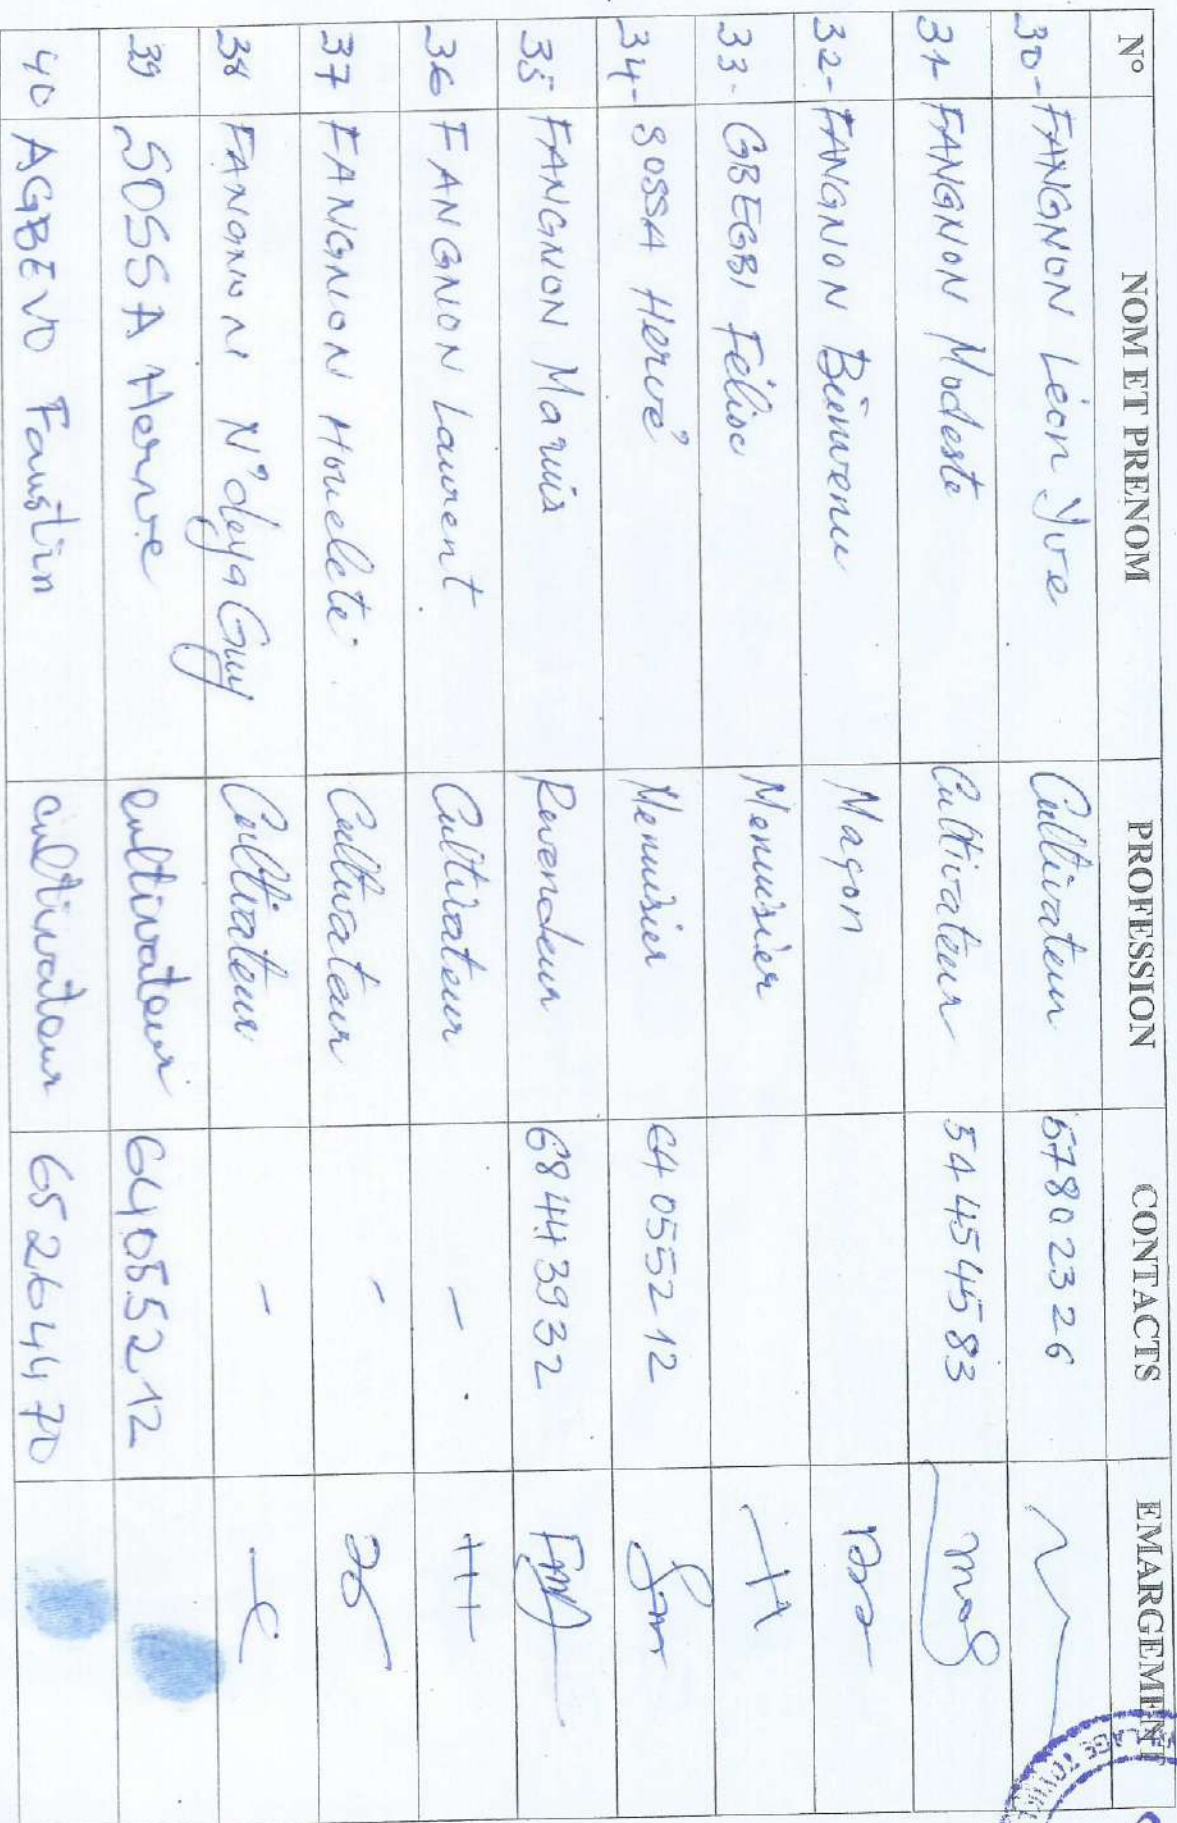 N° NOM ET PRENOM PROFESSION CONTACTS EMARGEMENT
30- FANGNON Léon Yve Cultivateur 57802326
31- FANGNON Modeste Cultivateur 54454583
32- FANGNON Bienvenu Maçon
33- GBEGBI Félise Menuisier
34- SOSSA Hervé Menuisier 64055212
35 FANGNON Marius Revendeur 68443932
36 FANGNON Laurent Cultivateur -
37 FANGNION Houeleté Cultivateur -
38 FANGNION N'deya Guy Cultivateur -
39 SOSSA Herve cultivateur 64055212
40 AGBEVO Faustin cultivateur 65264470